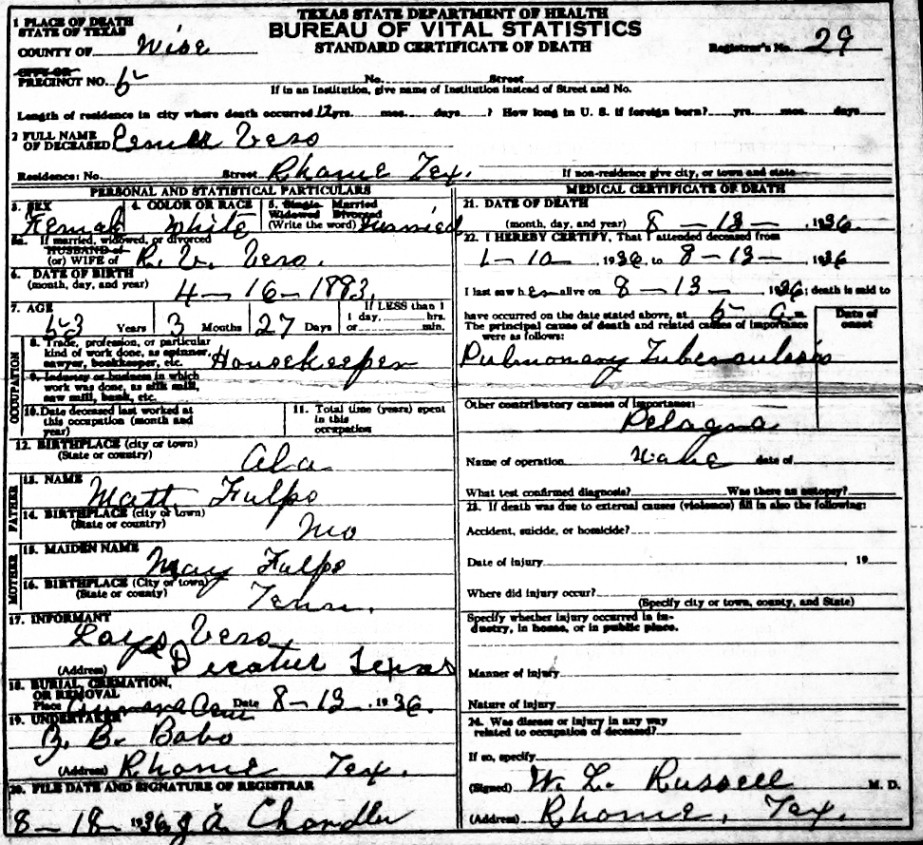 TEXAS STATE DEPARTMENT OF HEALTH
BUREAU OF VITAL STATISTICS
STANDARD CERTIFICATE OF DEATH
1 PLACE OF DEATH
STATE OF TEXAS
COUNTY OF Wise
Registrar's No. 29
CITY OR
PRECINCT NO. 5
No. Street
If in an Institution, give name of Institution instead of Street and No.
Length of residence in city where death occurred 12 yrs. mos. days ? How long in U. S. if foreign born? yrs. mos. days
2 FULL NAME
OF DECEASED Vero
Residence: No. Street Rhome Tex. If non-residence give city, or town and state
PERSONAL AND STATISTICAL PARTICULARS
3. SEX 4. COLOR OR RACE 5. Single Married
Widowed Divorced
Female White (Write the word) Married
5a. If married, widowed, or divorced
HUSBAND of
(or) WIFE of R. V. Vero.
6. DATE OF BIRTH
(month, day, and year) 4-16-1893
7. AGE If LESS than 1
53 Years 3 Months 27 Days 1 day, hrs.
or min.
OCCUPATION
8. Trade, profession, or particular
kind of work done, as spinner,
sawyer, bookkeeper, etc. Housekeeper
9. Industry or business in which
work was done, as silk mill,
saw mill, bank, etc.
10. Date deceased last worked at
this occupation (month and
year)
11. Total time (years) spent
in this
occupation
12. BIRTHPLACE (city or town)
(State or country) Ala
FATHER
13. NAME
Matt Fulpo
14. BIRTHPLACE (city or town)
(State or country) Mo
MOTHER
15. MAIDEN NAME
May Fulpo
16. BIRTHPLACE (City or town)
(State or country) Tenn.
17. INFORMANT
Vero
(Address) Decatur Texas
18. BURIAL, CREMATION,
OR REMOVAL
Place Cem Date 8-13-1936.
19. UNDERTAKER
B. B. Bobo
(Address) Rhome Tex.
20. FILE DATE AND SIGNATURE OF REGISTRAR
8-18-1936 J A Chandler
MEDICAL CERTIFICATE OF DEATH
21. DATE OF DEATH
(month, day, and year) 8-13-, 1936
22. I HEREBY CERTIFY, That I attended deceased from
1-10, 1936, to 8-13-, 1936
I last saw her alive on 8-13-, 1936; death is said to
have occurred on the date stated above, at 5- A m.
The principal cause of death and related causes of importance
were as follows:
Date of
onset
Pulmonary Tuberculosis
Other contributory causes of importance:
Pelagra
Name of operation none date of
What test confirmed diagnosis? Was there an autopsy?
23. If death was due to external causes (violence) fill in also the following:
Accident, suicide, or homicide?
Date of injury , 19
Where did injury occur?
(Specify city or town, county, and State)
Specify whether injury occurred in in-
dustry, in home, or in public place.
Manner of injury
Nature of injury
24. Was disease or injury in any way
related to occupation of deceased?
If so, specify
(Signed) W. L. Russell M. D.
(Address) Rhome, Tex.